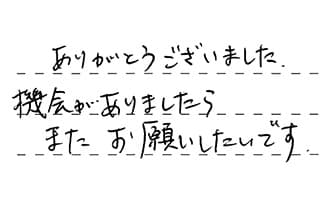 ありがとうございました.
機会がありましたら
また お願いしたいです.